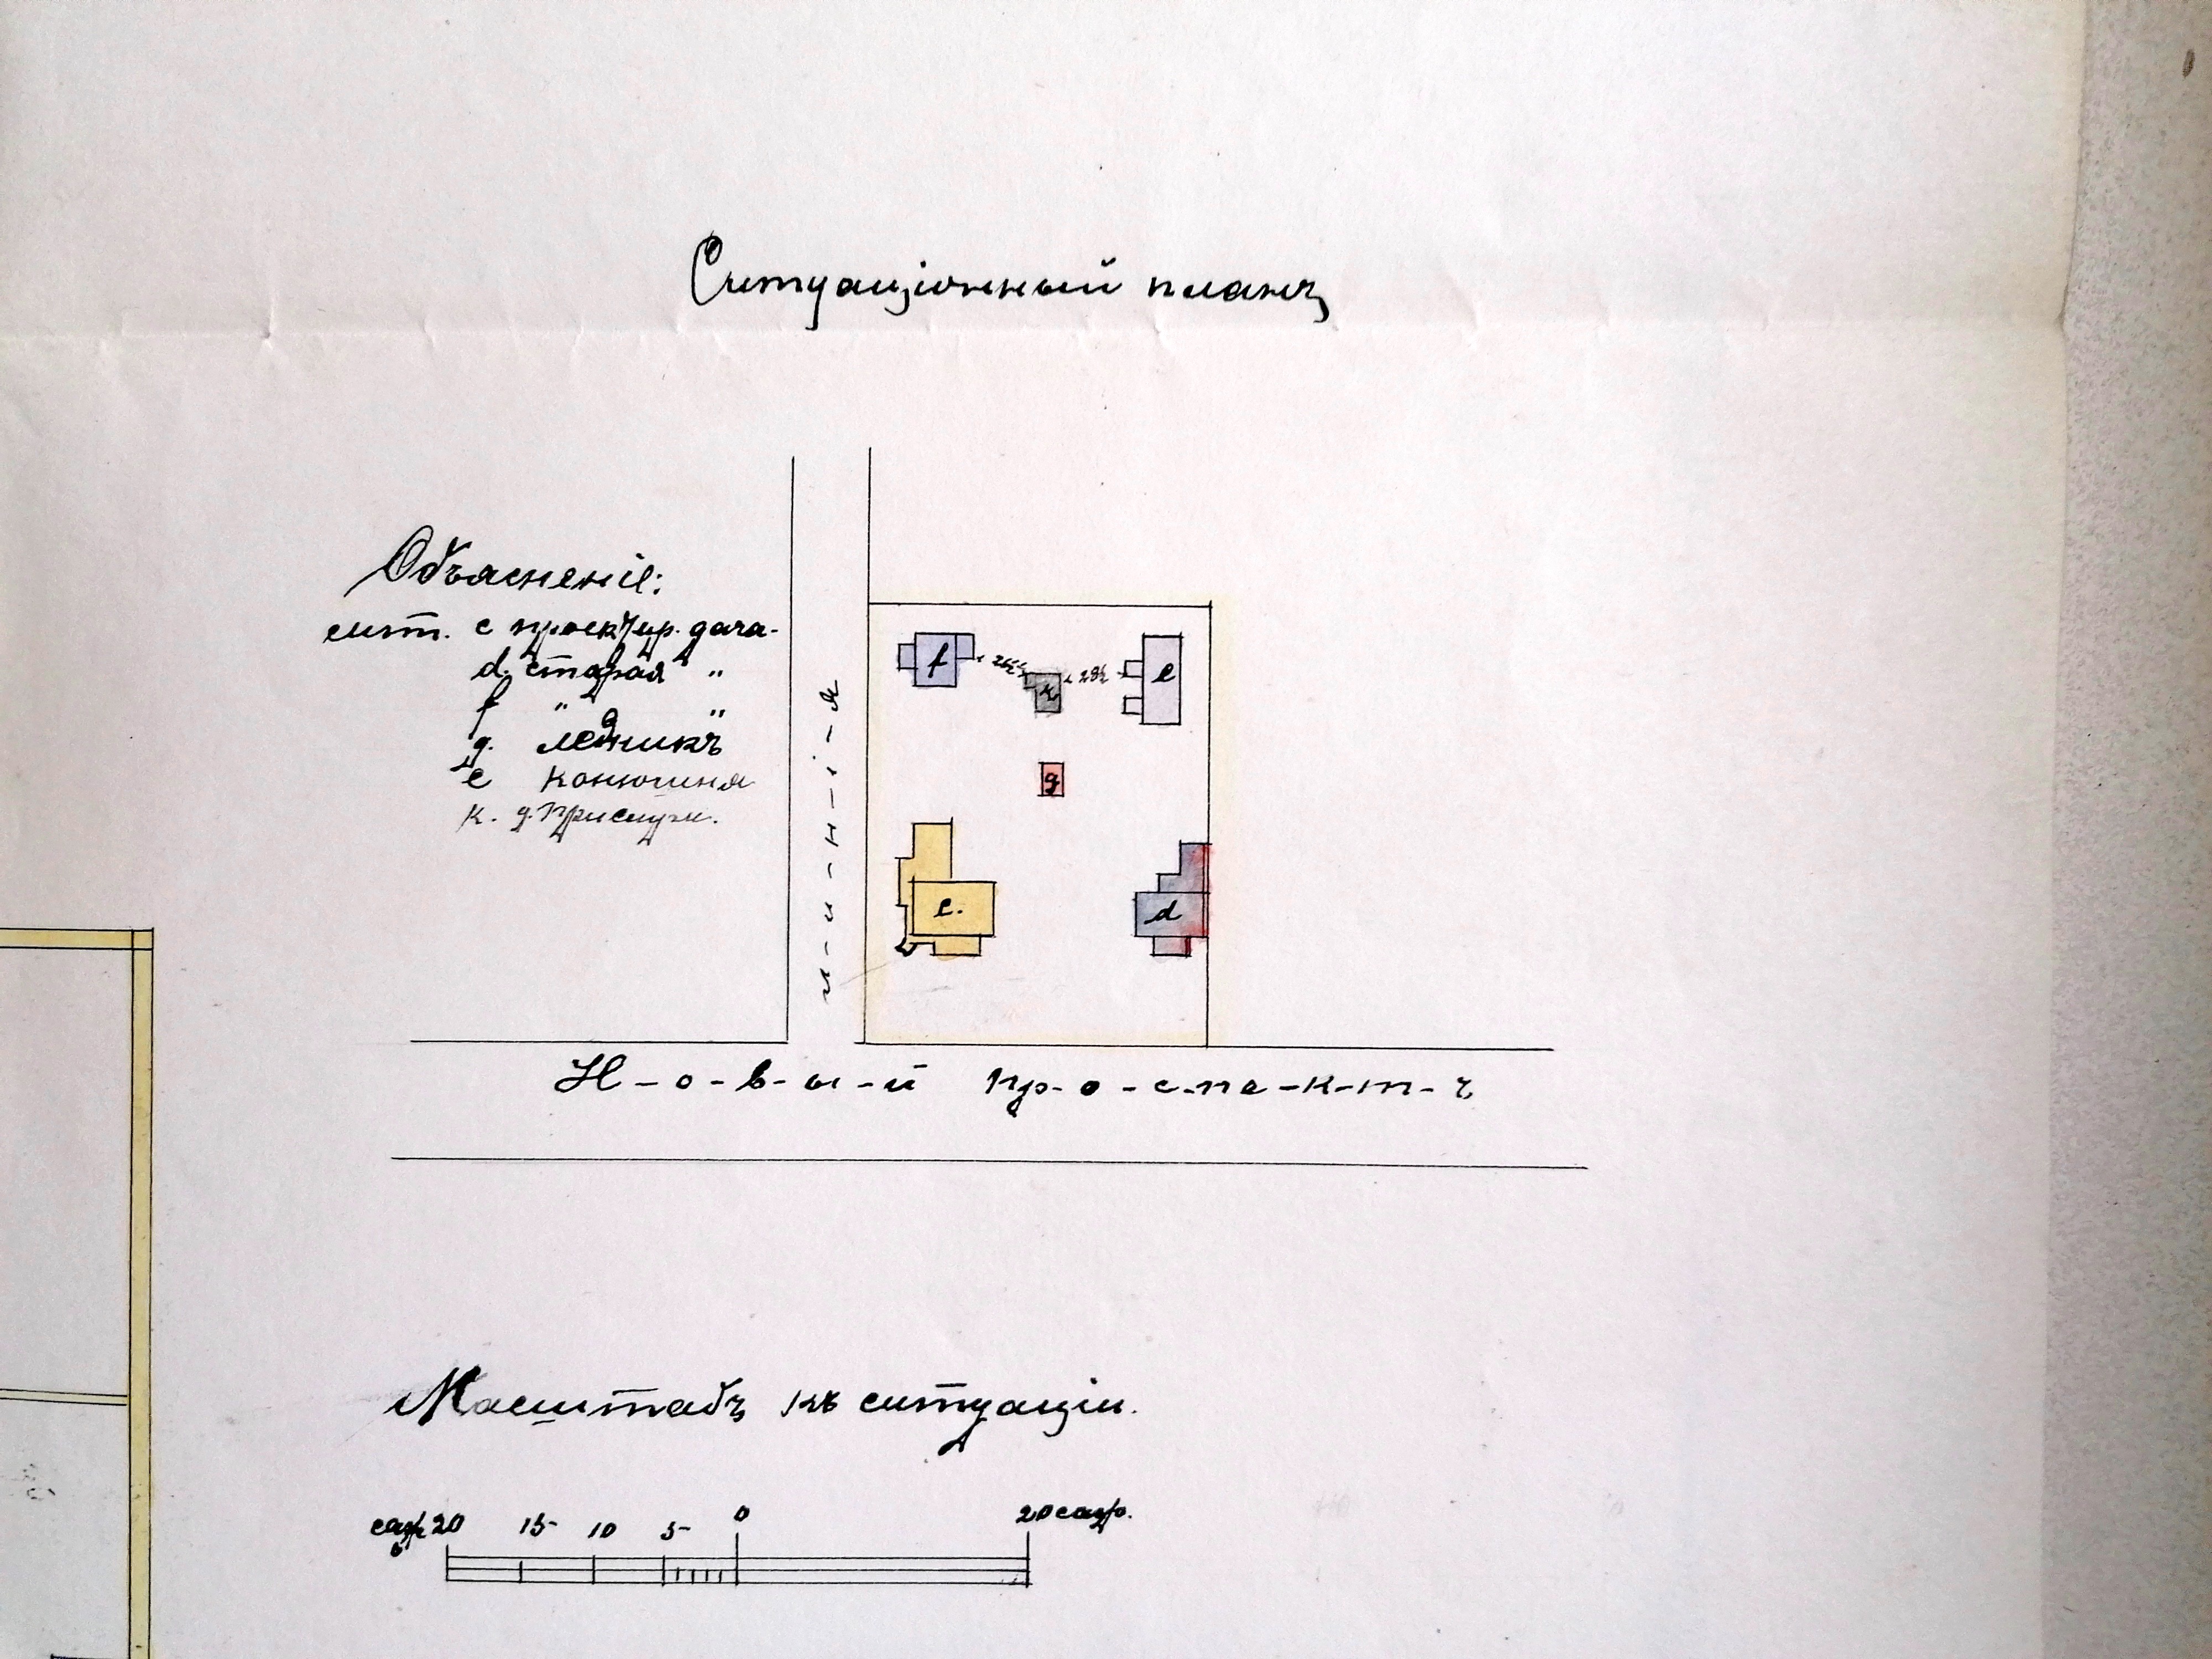 Ситуаціонный планъ
Объясненіе:
сит. с проектир. дача
d. старая "
f " "
g. Ледникъ
e Конюшня
к. д. Прислуги.
f
к
e
g
c.
d
л-и-н-і-я
Н-о-в-ы-й Пр-о-с-пе-к-т-ъ
Масштабъ къ ситуаціи.
саж. 20 15 10 5 0 20 саж.